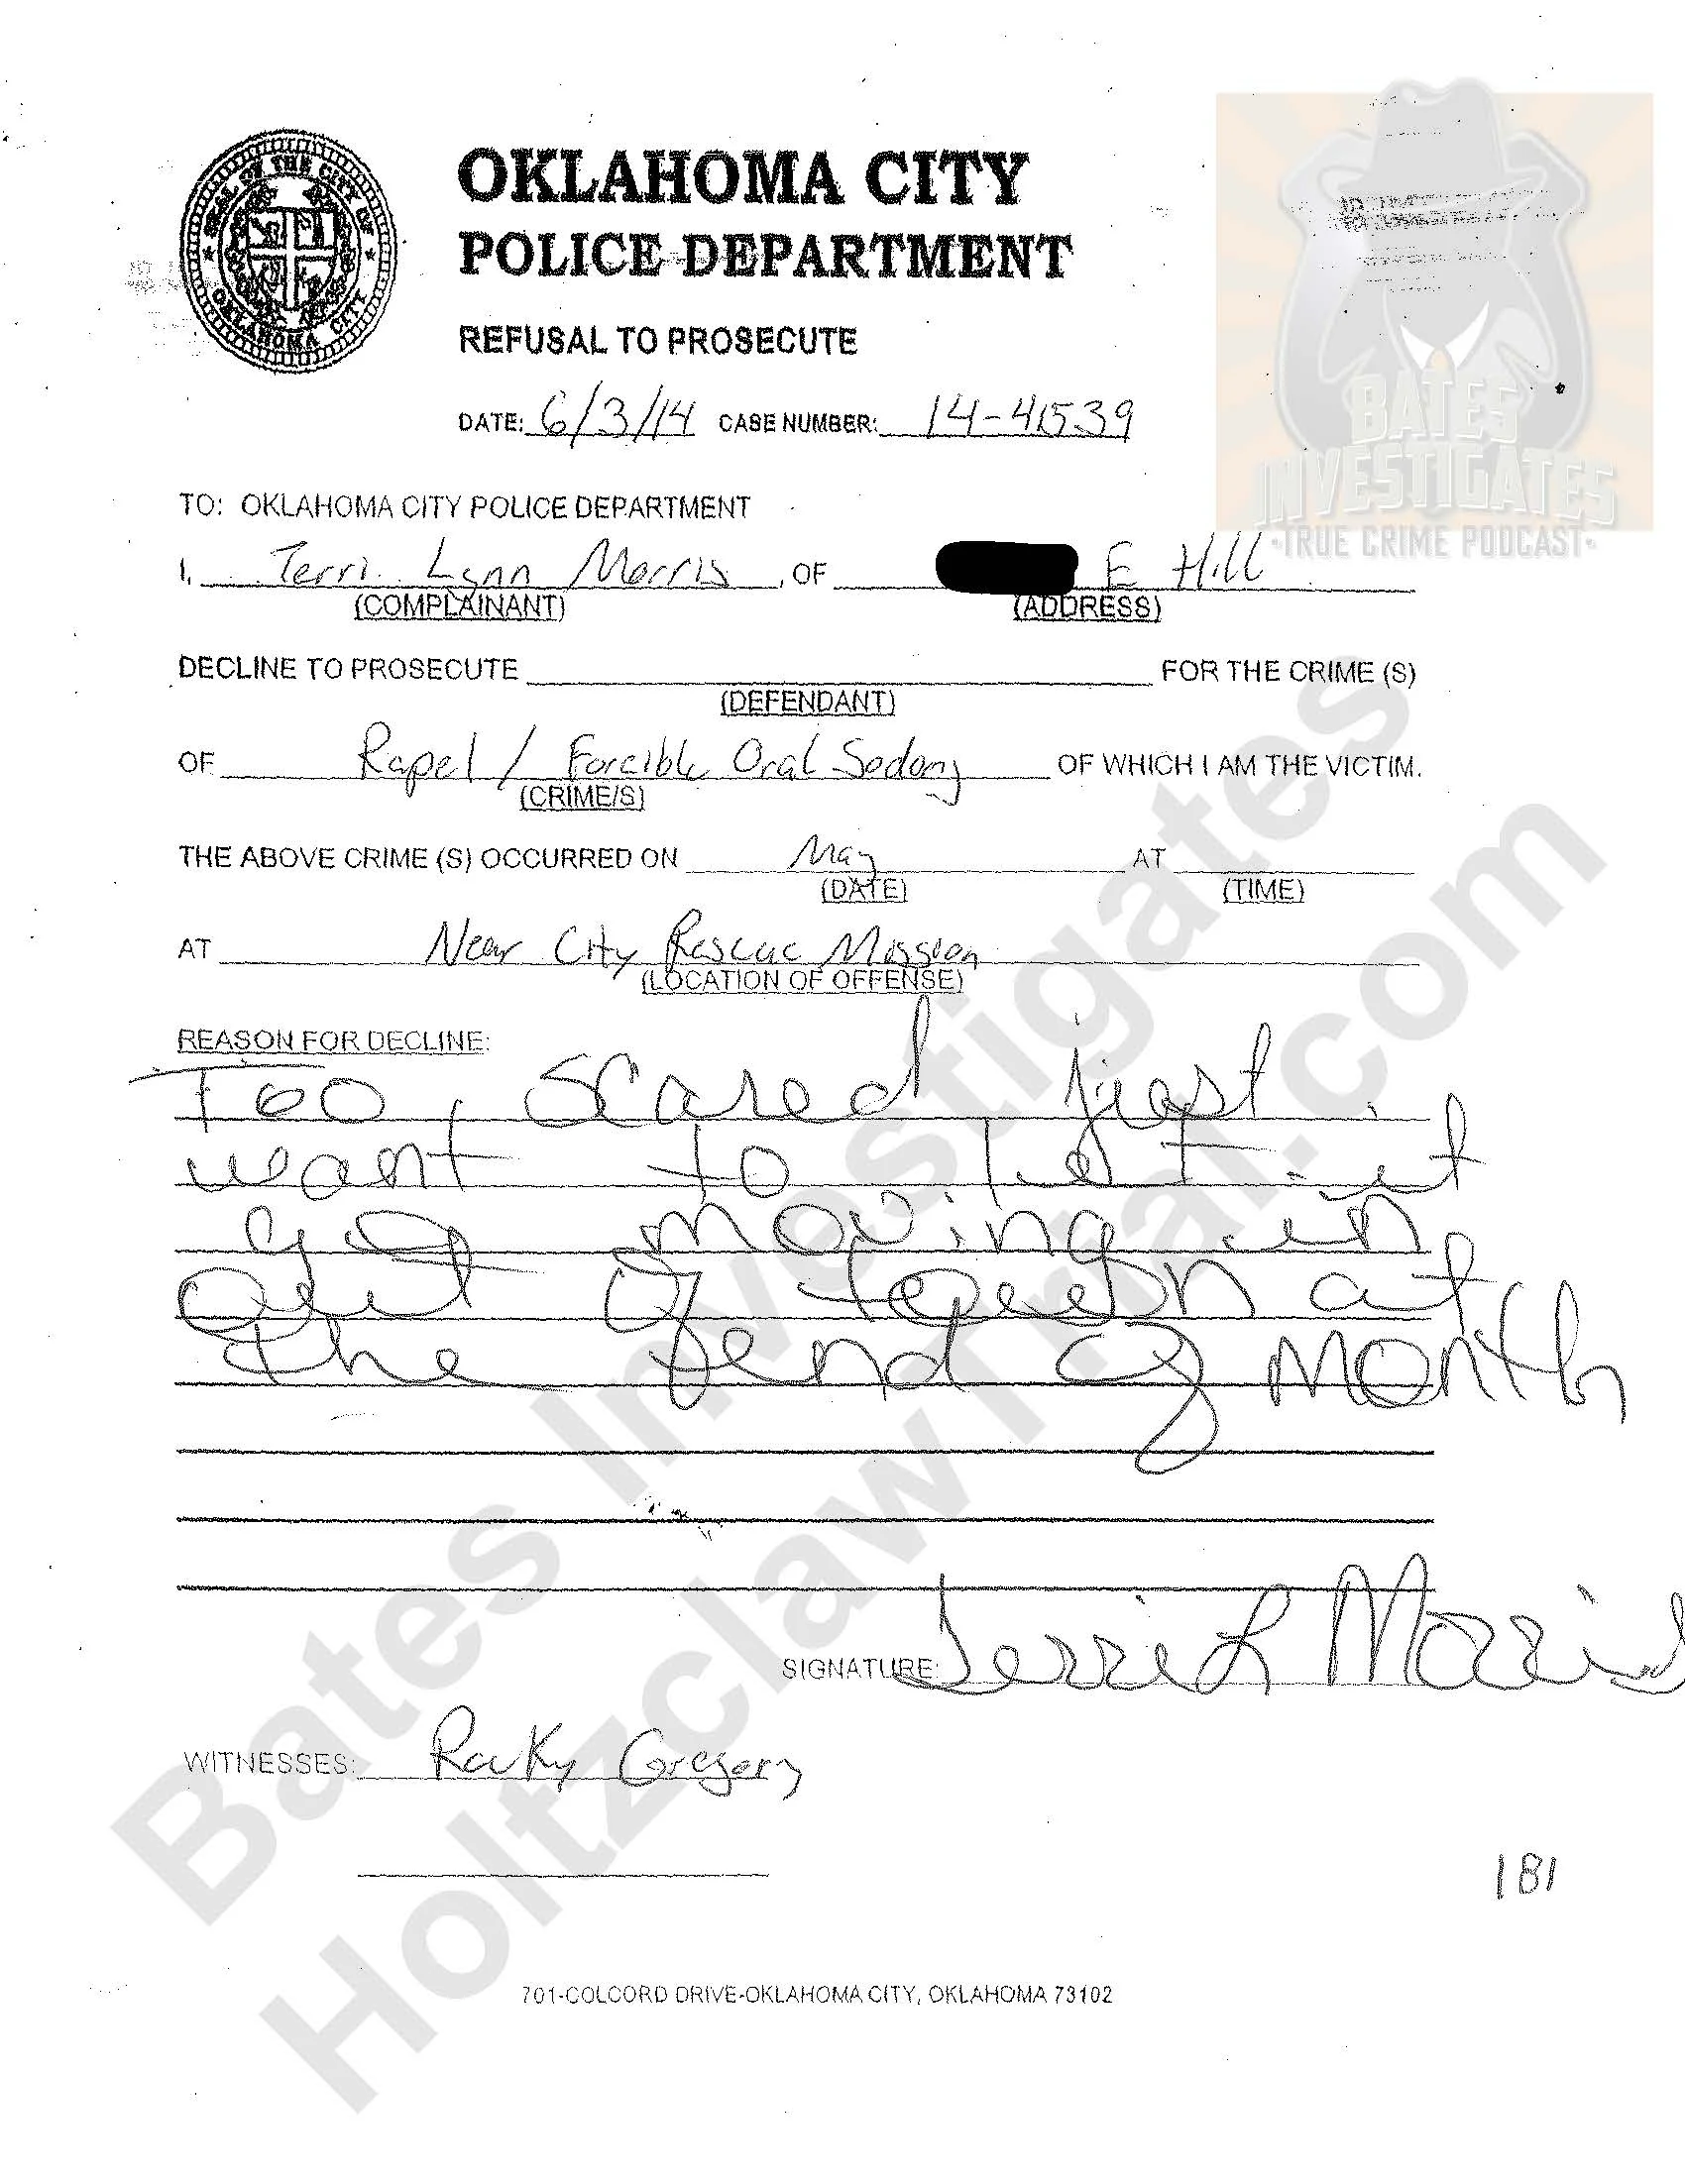 SEAL OF THE CITY OF
OKLAHOMA CITY
OKLAHOMA CITY
POLICE DEPARTMENT
REFUSAL TO PROSECUTE
DATE: 6/3/14 CASE NUMBER: 14-41539
BATES
INVESTIGATES
·TRUE CRIME PODCAST·
TO: OKLAHOMA CITY POLICE DEPARTMENT
I, Terri Lynn Morris, OF E Hill
(COMPLAINANT) (ADDRESS)
DECLINE TO PROSECUTE FOR THE CRIME (S)
(DEFENDANT)
OF Rape1 / Forcible Oral Sodomy OF WHICH I AM THE VICTIM.
(CRIME/S)
THE ABOVE CRIME (S) OCCURRED ON May AT
(DATE) (TIME)
AT Near City Rescue Mission
(LOCATION OF OFFENSE)
REASON FOR DECLINE:
Too scared just
want to let it
go moving in
out of town at
the end of month
SIGNATURE: Terri L Morris
WITNESSES: Rocky Gregory
181
701-COLCORD DRIVE-OKLAHOMA CITY, OKLAHOMA 73102
Bates Investigates
HoltzclawTrial.com